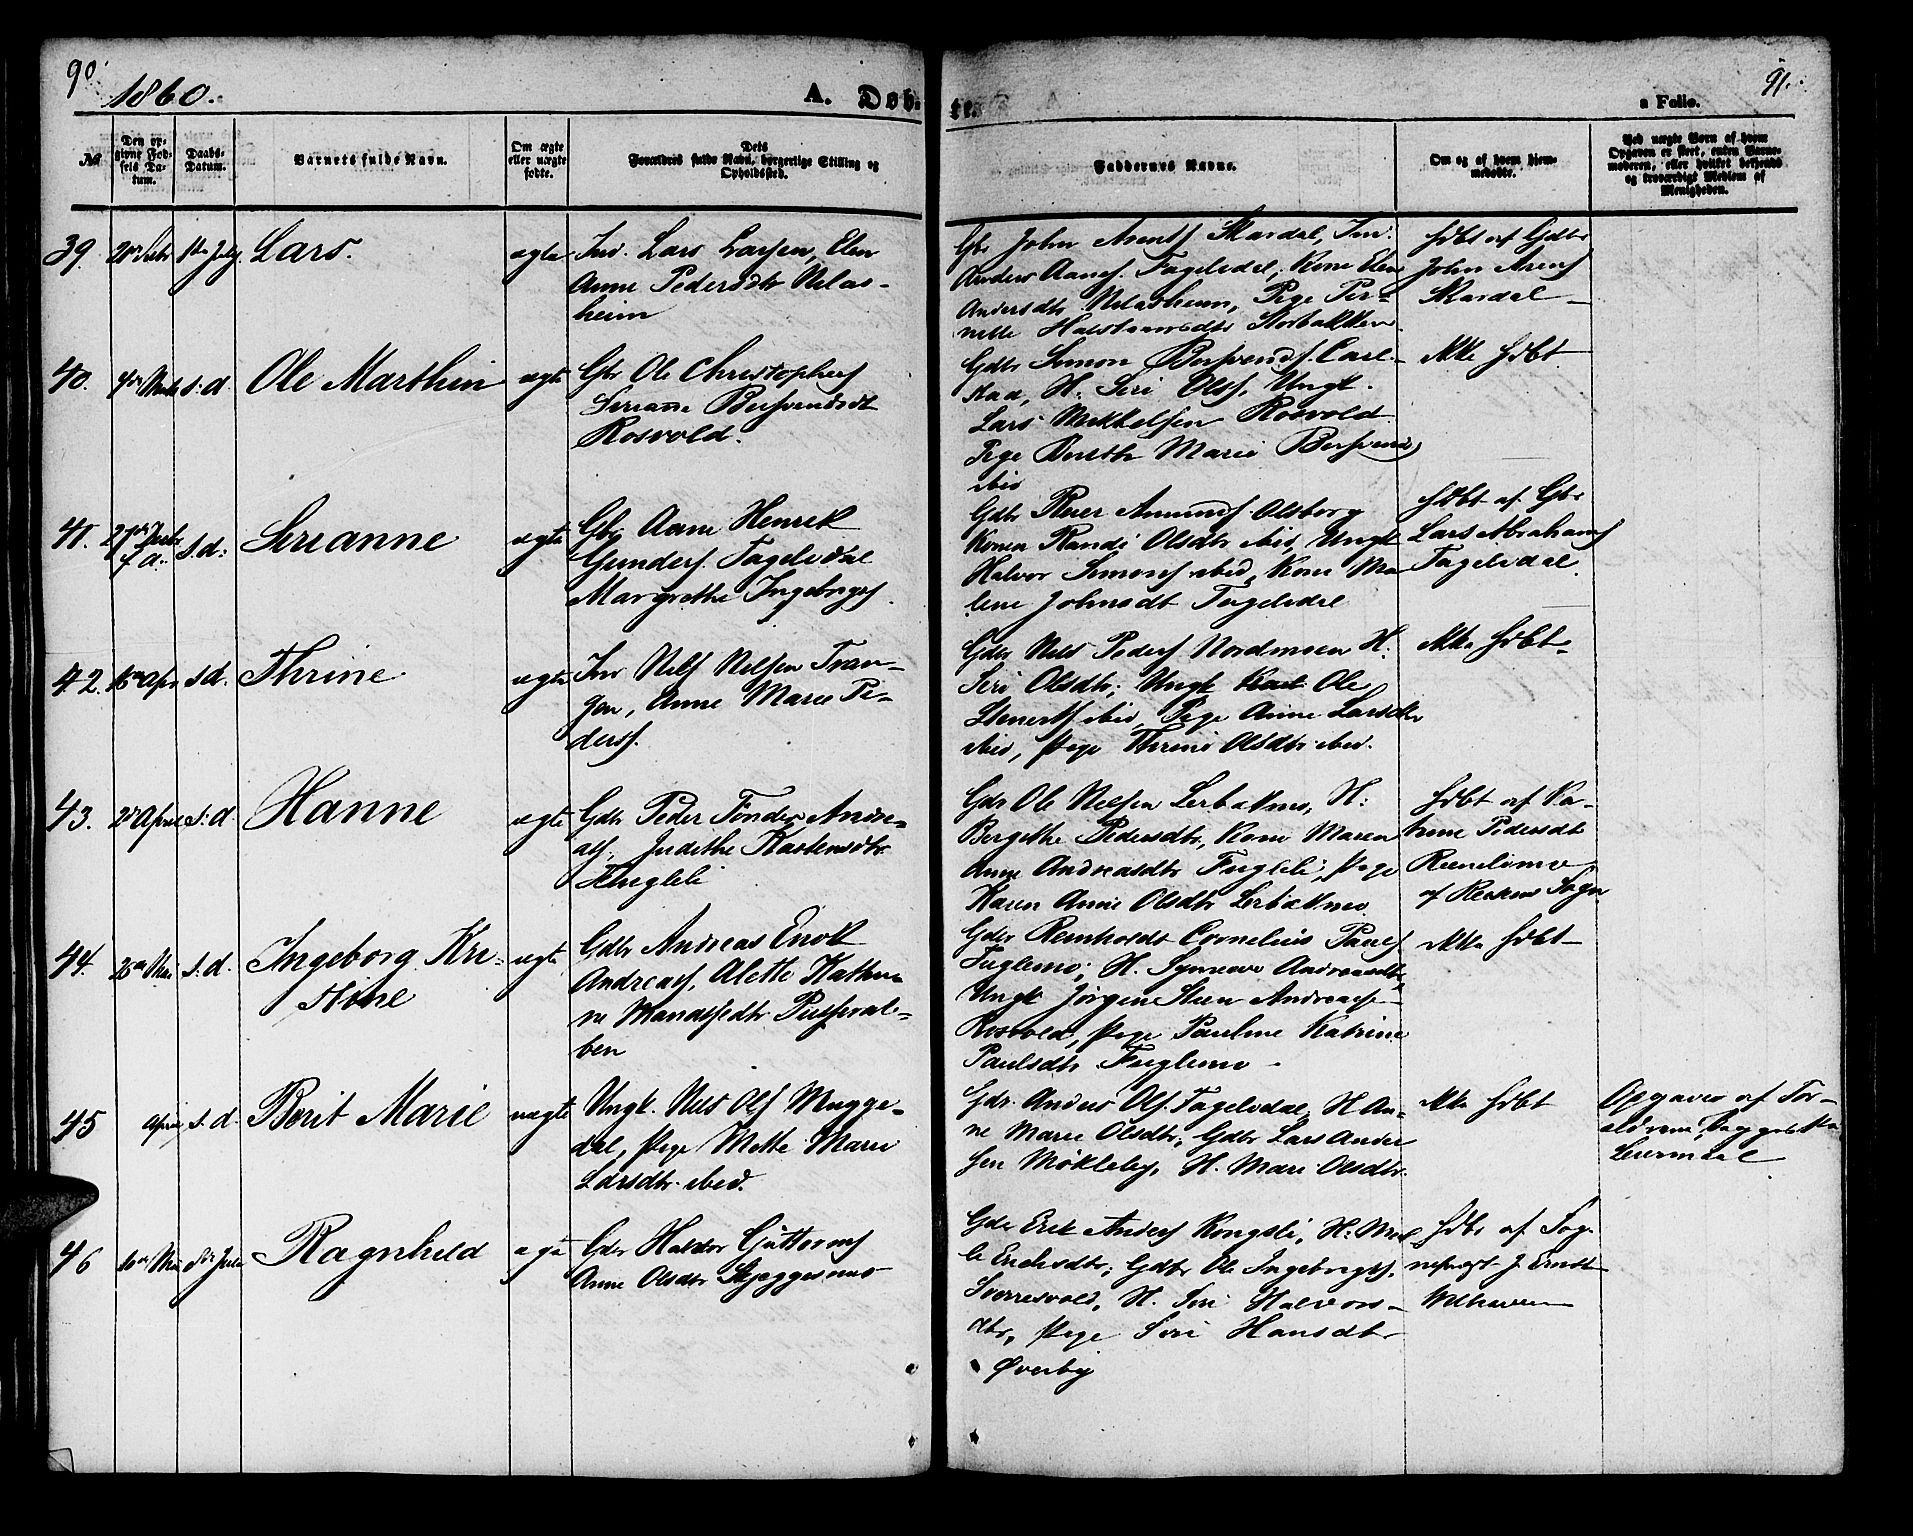 90
1860.
A. Døb-
te.
a Folio.
91.
No
Den op-
givne Fød-
sels Da-
tum.
Daabs-
Datum.
Barnets fulde Navn.
Om ægte
eller uægte
fødte.
Dets
Forældres fulde Navn, borgerlige Stilling og
Opholdssted.
Faddernes Navne.
Om og af hvem hjem-
medøbte.
Ved uægte Børn af hvem
Opgaven er skeet, enten Barne-
moderen, eller hvilket bekjendt
og troværdigt Medlem af
Menigheden.
39. 1ste July Lars. ægte
Ind. Lars Larsen, Elen
Anne Pedersdtr
heim
Gbr John Skardal, Ind.
Anders Fagelidal, Kone Elen
Andersdtr Pige Per-
nelle
hdbt af Gdbr
John Arens
Skardal
40. s. d. Ole Marthin ægte
Gbr Ole Christophers
Serianne Bersvendsdt
Rosvold.
Gdbr Simon Bersvends.
H. Siri Ols, Ungk.
Lars Mikkelsen Rosvold
Pige Berethe Marie Bersvends
ibid
ikke hdbt
41. 27de f. a. s. d. Serianne ægte
Gbr Aane Henrik
Gunders. Fagelidal
Margrethe Ingebrigs.
Gdbr Peder Amunds Olsborg
Konen Randi Olsdtr ibid, Ungk
Halvor Simons ibid, Kone Ma-
lene Johnsdt Fagelidal
hdbt af Gbr
Lars Abrahams
Fagelidal.
42. 16de Apr s. d. Thrine ægte
Ind Nils Nilsen Tran-
gen, Anne Marie Pe-
ders.
Gdbr Nils Peders Nordmoen H.
Siri Olsdtr, Ungk Ole
Stenerts ibid, Pige Anne Larsdtr
ibid, Pige Thrine Olsdtr ibid.
ikke hdbt
43. April s. d. Hanne ægte
Gdbr Peder Tønder Andre-
as, Judithe Karlensdtr
Fugleli
Gdr Ole Nilsen Lerbakmo, H:
Bergithe Pedersdtr, Kone Maren
Anne Andreasdtr Fugleli, Pige
Karen Anne Olsdtr Lerbakmo
hdbt af Ka-
trine Pedersdt
af Sogn
44. 25de Mai s. d. Ingeborg Kri-
stine ægte
Gdbr Andreas Enok
Andreas, Alette Kathri-
ne Manassedtr
ben
Gdbr Reinholdt Cornelius Pauls
Fuglemo, H. Synnøve Andreasdtr,
Ungk Jørgen Steen Andreas
Rosvold, Pige Pauline Katrine
Paulsdtr Fuglemo
ikke hdbt
45 April s. d. Berit Marie uægte
Ungk. Nils Ols Mugge-
dal, Pige Mette Marie
Larsdtr ibid.
Gdr. Anders Ols Fagelidal, H An-
ne Marie Olsdtr, Gdbr Lars Ander
sen Møkleby, H. Mari Olsdtr.
ikke hdbt
Opgaven af For-
ældrene,
46 8de July Ragnhild ægte
Gdbr Haldor Guttorms
Anne Olsdtr Skjeggesmo
Gdbr Erik Anders Kongsli, H:
Erichsdtr, Gdbr Ole Ingebrigts.
Sverresvold, H. Siri Halvors-
dtr, Pige Siri Hansdtr
Øverby
hdbt af Sog-
nepræst J. Ernst
Welhaven